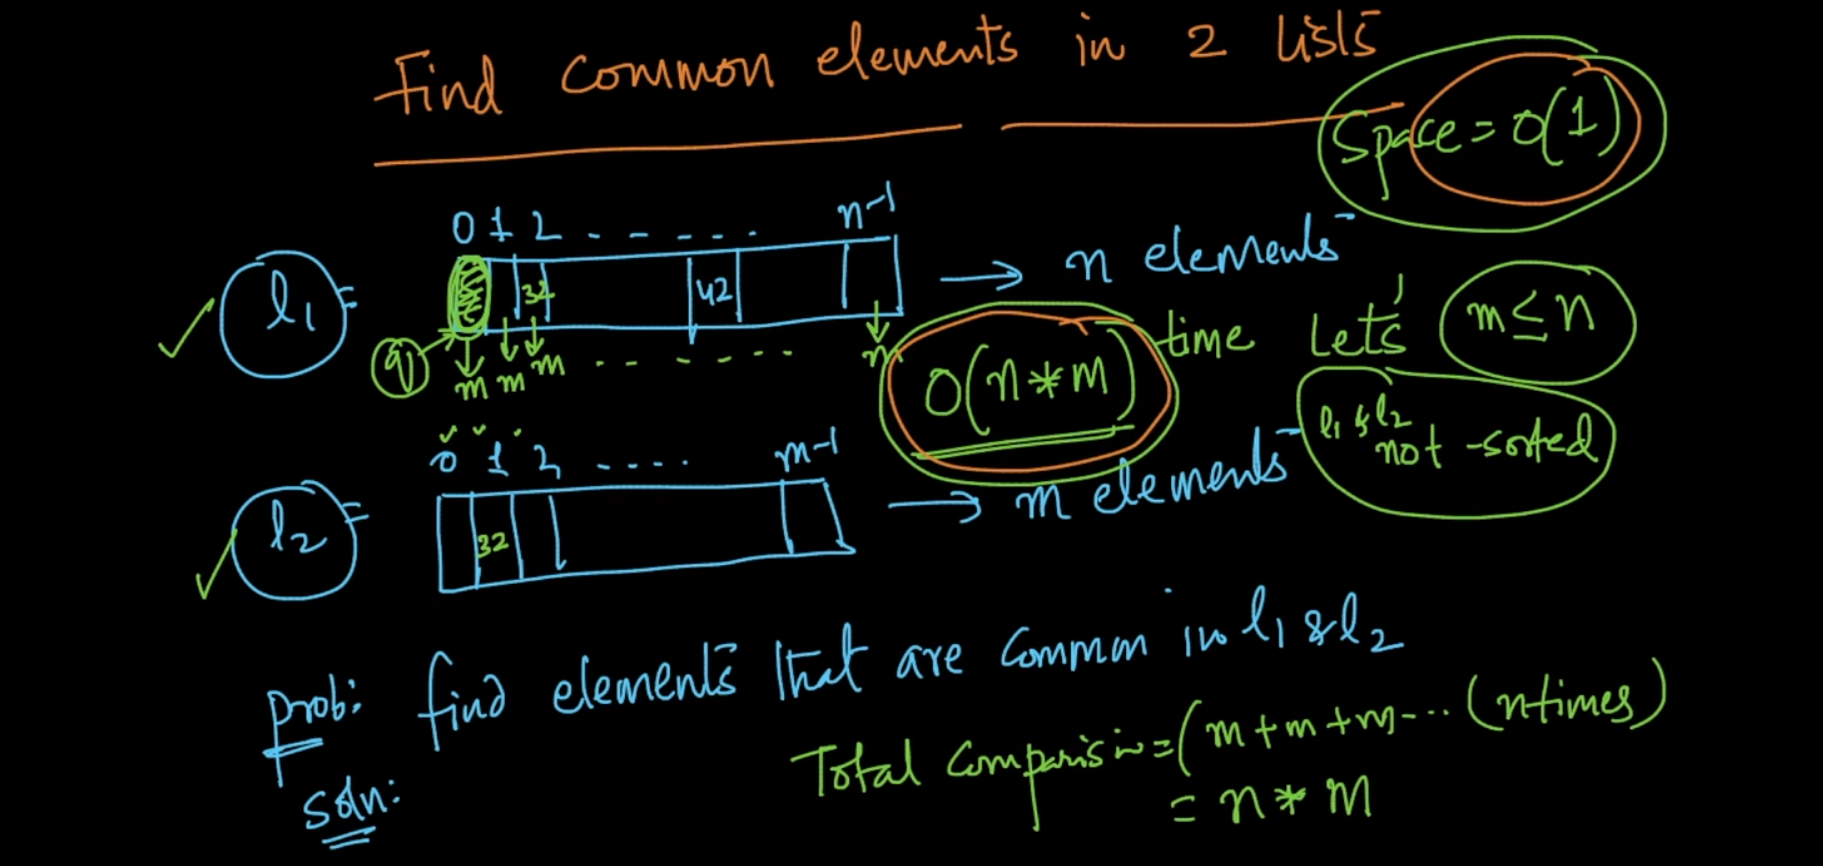 Find common elements in 2 lists
Space = O(1)
0 1 2 - - - - - n-1
l1 = 32 42 → n elements
q m m m - - - - - - n
O(n*m) time Let's m ≤ n
l1 & l2 not-sorted
0 1 2 - - - - m-1
l2 = 32 → m elements
Prob: find elements that are common in l1 & l2
Total Comparisin = (m+m+m--.. (ntimes)
= n * m
Soln: